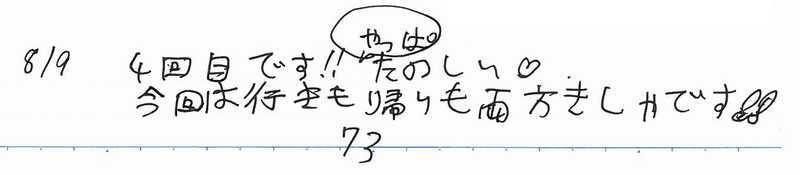 8/9 4回目です!! やっぱ たのしい♡
今回は行きも帰りも両方きしゃです
73